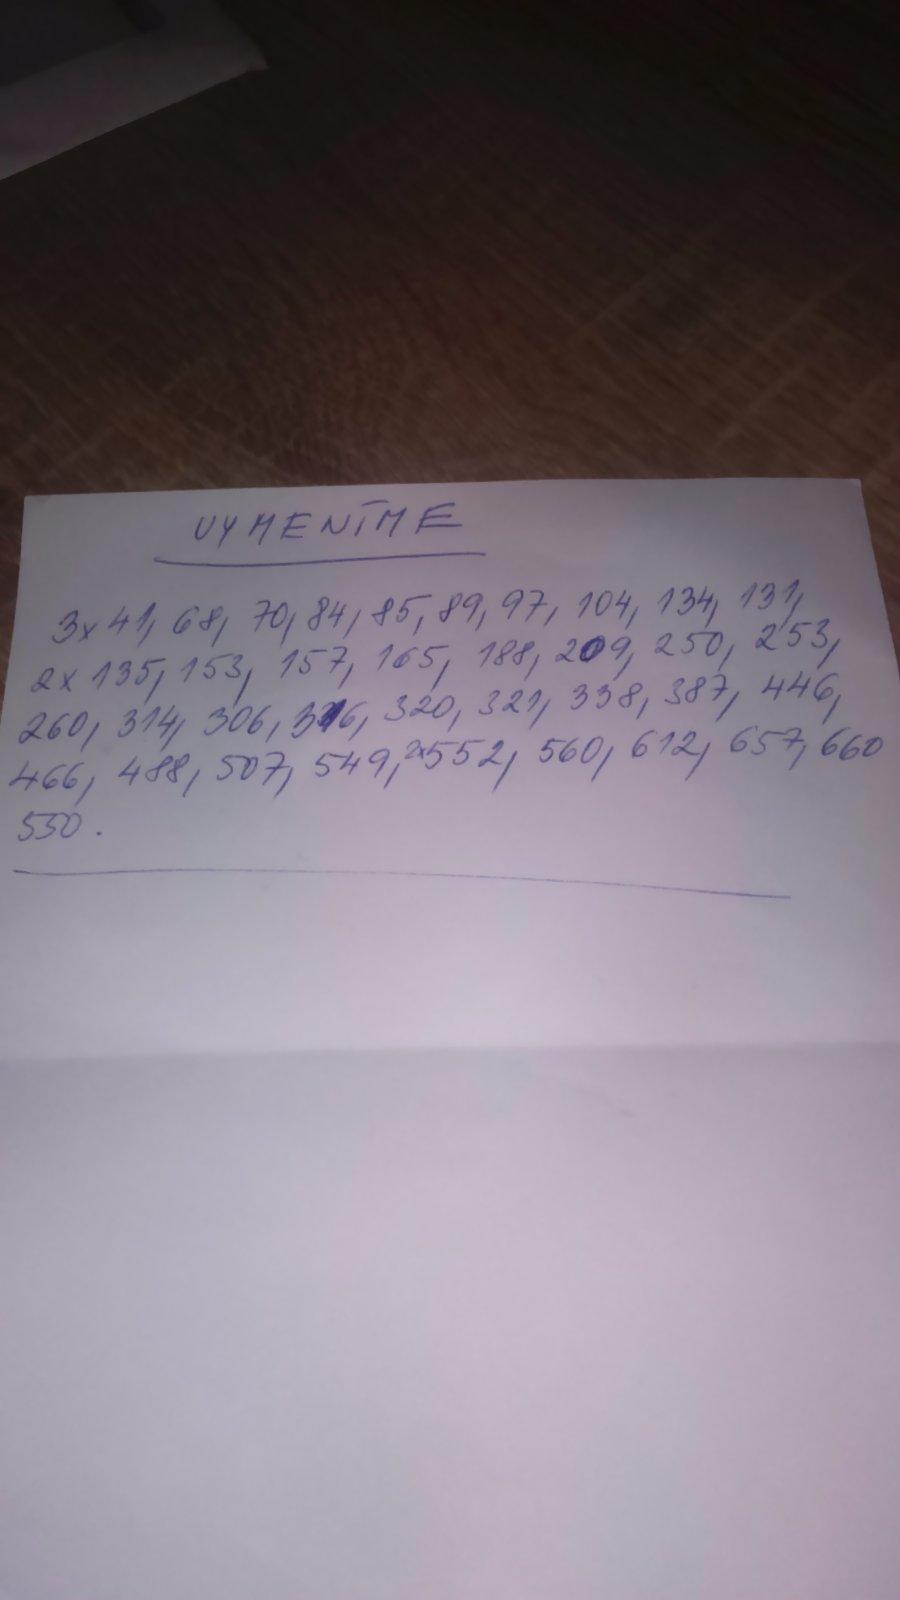 VYMENÍME
3x 41, 68, 70, 84, 85, 89, 97, 104, 134, 131,
2x 135, 153, 157, 165, 188, 209, 250, 253,
260, 314, 306, 316, 320, 321, 338, 387, 446,
466, 488, 507, 549, 2x552, 560, 612, 657, 660
550.